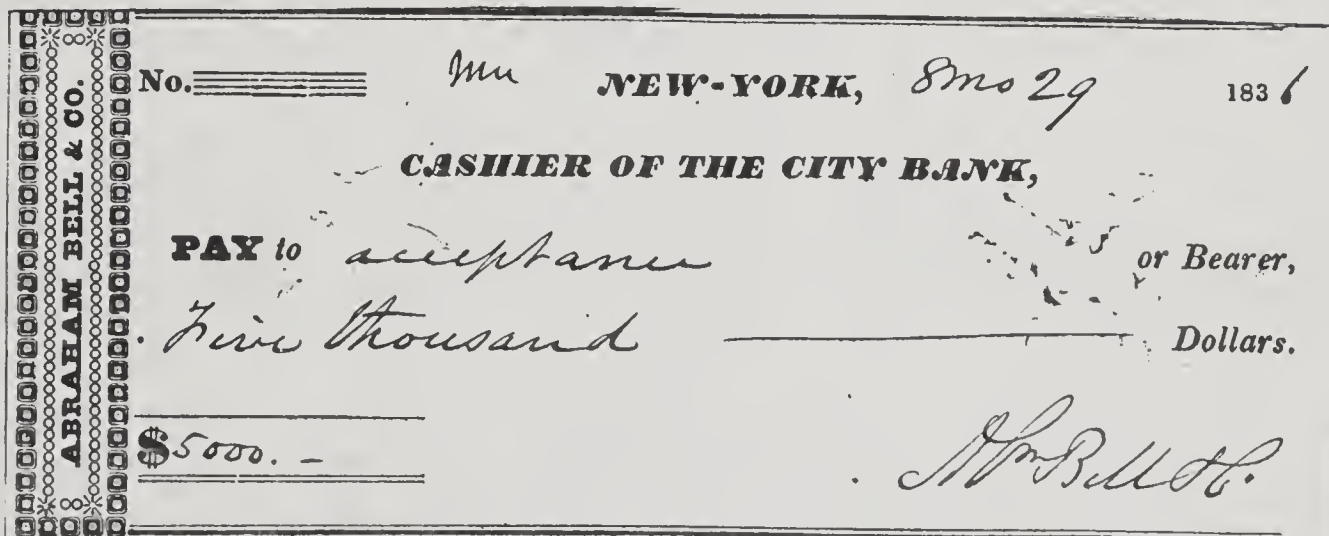 ABRAHAM BELL & CO.
No. NEW-YORK, 8mo 29 1836
CASHIER OF THE CITY BANK,
PAY to acceptance or Bearer,
Five thousand Dollars.
$5000. -
Abm Bell & Co.